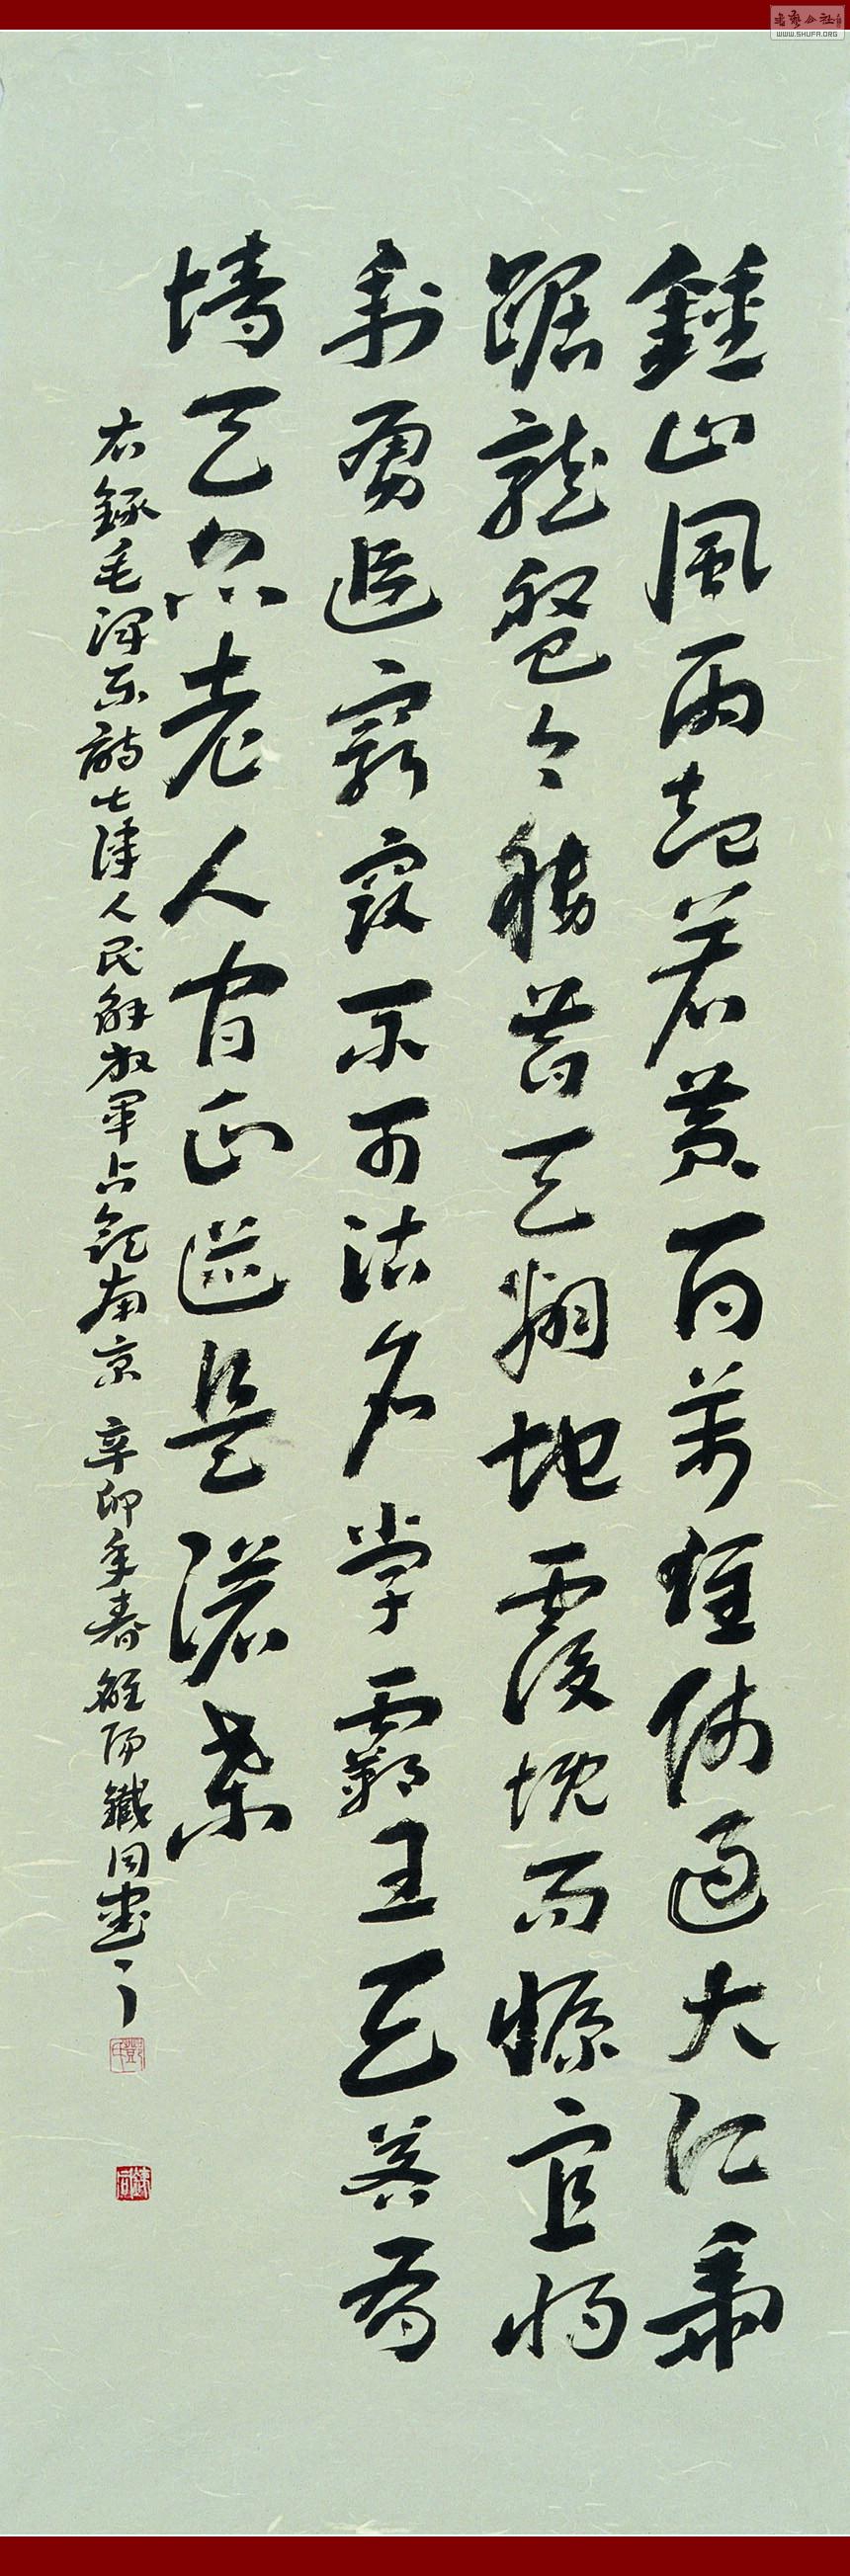 WWW.SHUFA.ORG
鍾山風雨起蒼黃百萬雄師過大江虎
踞龍盤今勝昔天翻地覆慨而慷宜將
剩勇追窮寇不可沽名學霸王天若有
情天亦老人間正道是滄桑
右錄毛澤東詩七律人民解放軍占領南京 辛卯年春 陽鐵同書